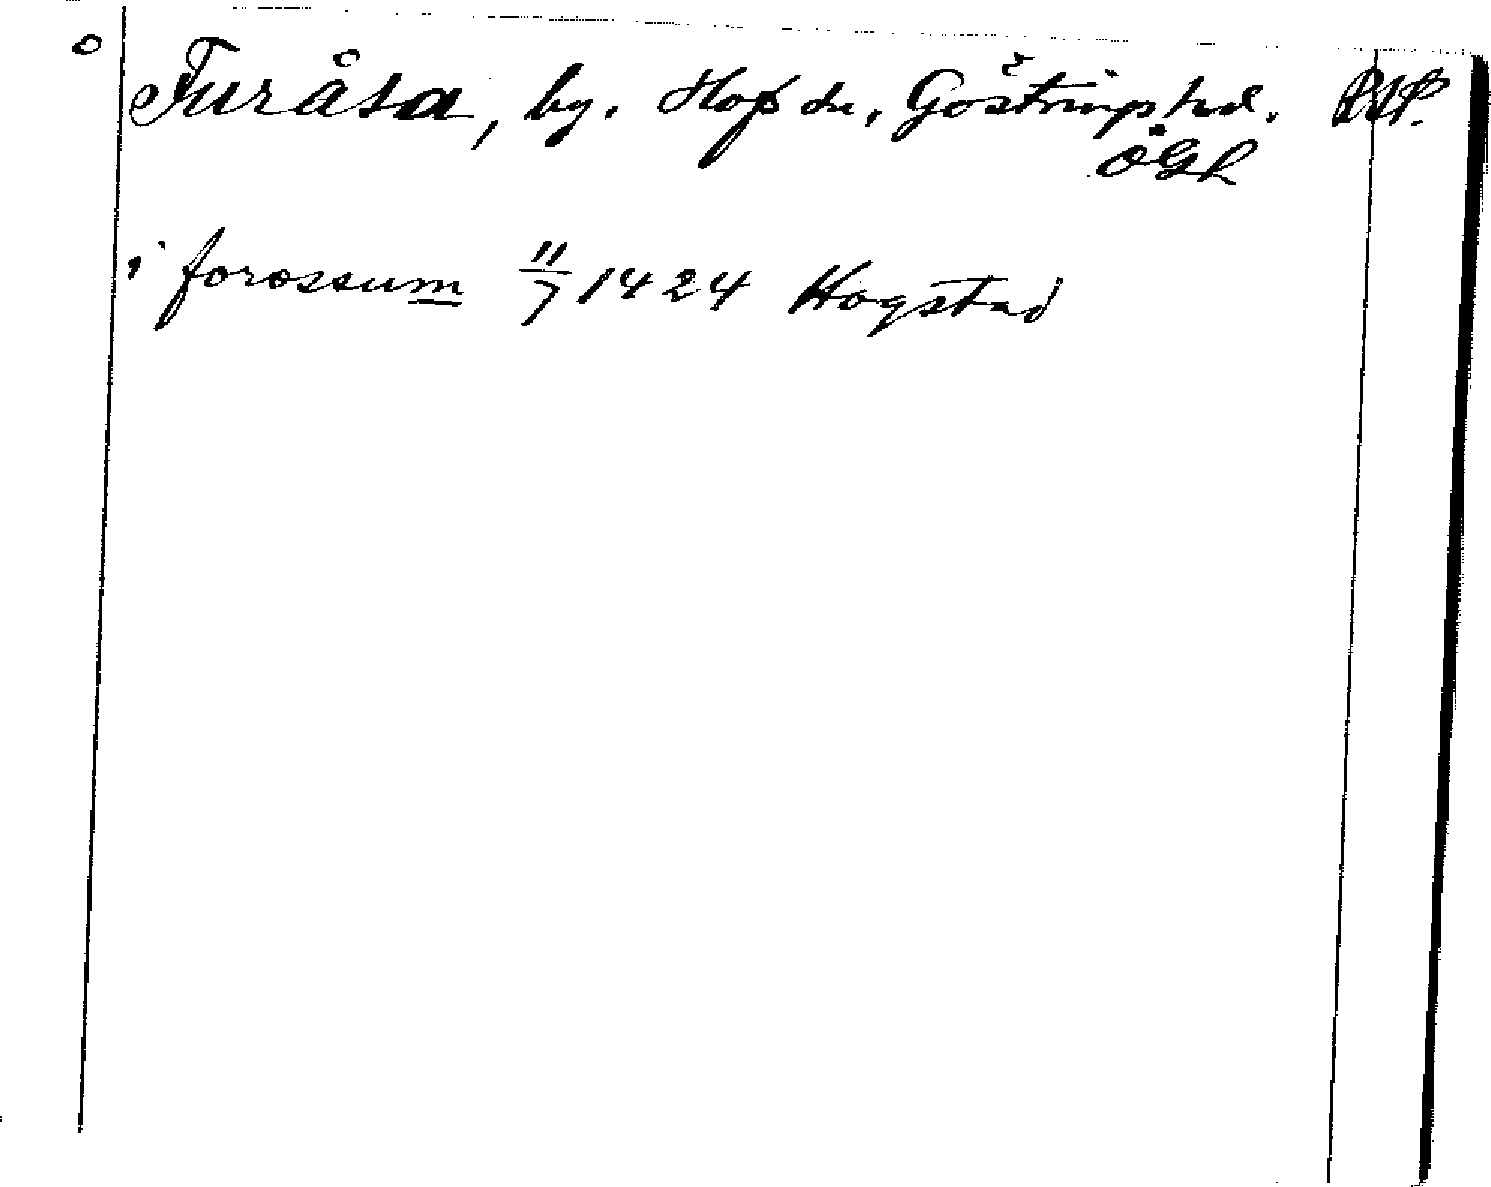 Furåsa, by. Hofs sn, Göstrings hd.
ÖGL
i forossum 11/7 1424 Hogstad